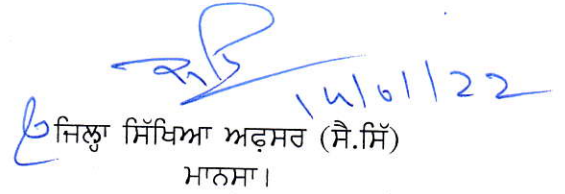 14/01/22
ਜਿਲ੍ਹਾ ਸਿੱਖਿਆ ਅਫ਼ਸਰ (ਸੈ.ਸਿੱ)
ਮਾਨਸਾ।